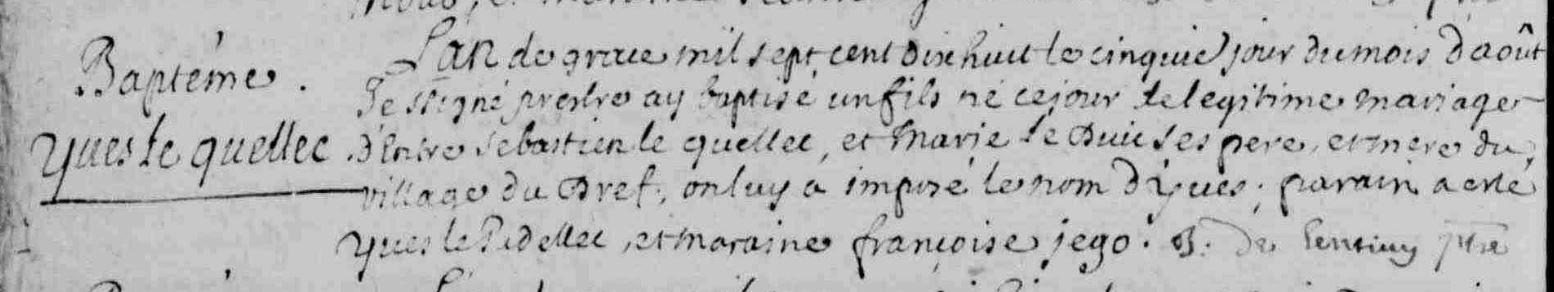 Baptéme.
Yves le quellec
L'an de grace mil sept cent dixhuit le cinquie jour du mois d'août
Je ssigné prestre ay baptisé un fils né ce jour de legitime mariage
d'Entre sebastien le quellec, et marie le Duic ses pere, et mere du
village du Dref; on luy a imposé le nom d'yves; parain a esté
yves le Pedellec, et maraine françoise jego. de ptre